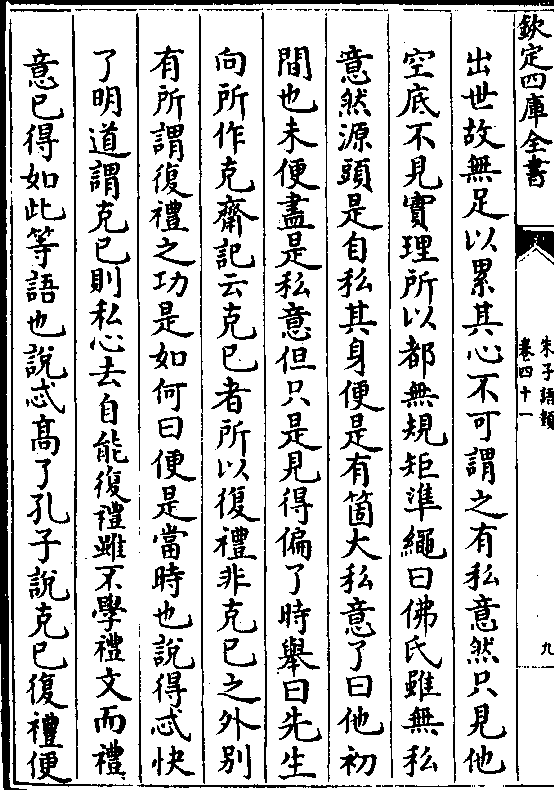 欽定四庫全書
朱子語類
卷四十一
九
出世故無足以累其心不可謂之有私意然只見他
空底不見實理所以都無規矩準繩曰佛氏雖無私
意然源頭是自私其身便是有箇大私意了曰他初
間也未便盡是私意但只是見得偏了時舉曰先生
向所作克齋記云克已者所以復禮非克已之外别
有所謂復禮之功是如何曰便是當時也說得忒快
了明道謂克已則私心去自能復禮雖不學禮文而禮
意已得如此等語也說忒髙了孔子說克已復禮便